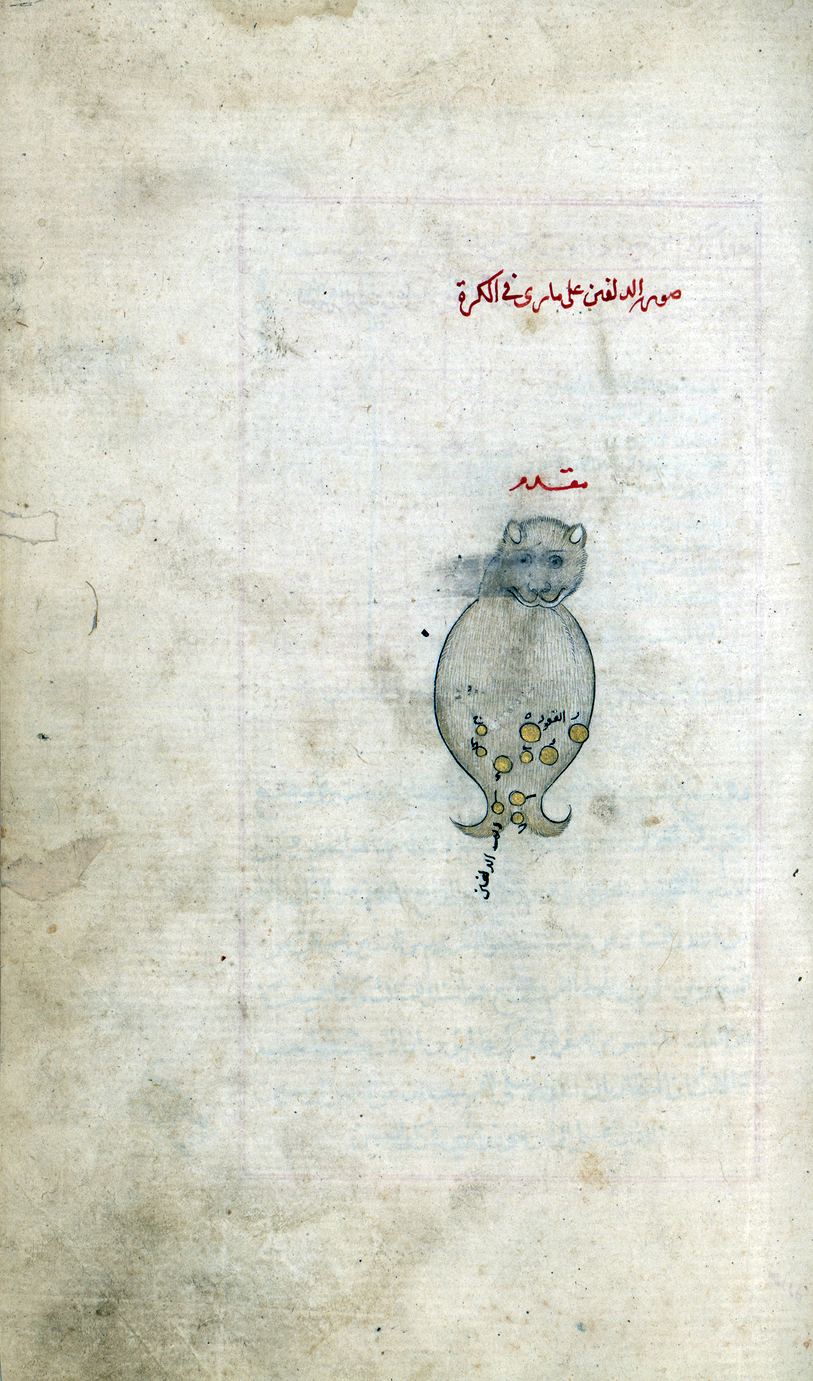 صورة الدلفين على ما يرى في الكرة
مقدم
ح
ر
القعود
ه
ط
و
ج
د
ا
ب
ى
ذنب الدلفين